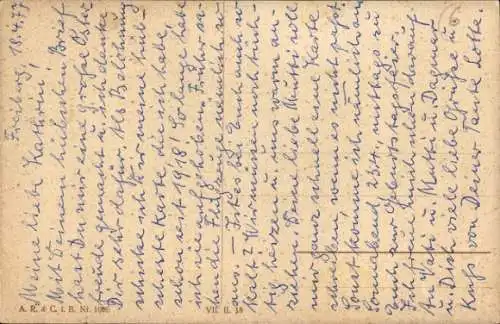 Freiberg, 18.4.77
Meine liebe Kathrin!
Mit Deinem hübschen Brief
hast Du mir eine große Oster-
freude gemacht u. ich danke
Dir sehr dafür. Als Belohnung
schicke ich Dir meine
Karte die ich habe,
schon seit 1918! So lange habe
ich sie aufgehoben. Früher sa-
hen die Flugzeuge nämlich so
aus. – Ist es bei Euch auch so
kalt? Wir müssen noch tüch-
tig heizen u. uns warm an-
ziehen. Deine liebe Mutti soll
mir ganz schnell eine Karte
schreiben, wenn es nicht paßt.
Sonst komme ich nämlich am
Sonnabend, 23.4., mittags zu
Euch zur Geburtstagsfeier.
Ich freue mich schon darauf.
An Vati u. Mutti u.
u. Dich viele liebe Grüße u.
Kuß von Deiner Tante Lotte.
A. R. & C. i. B. Nr.
VII. 11. 18